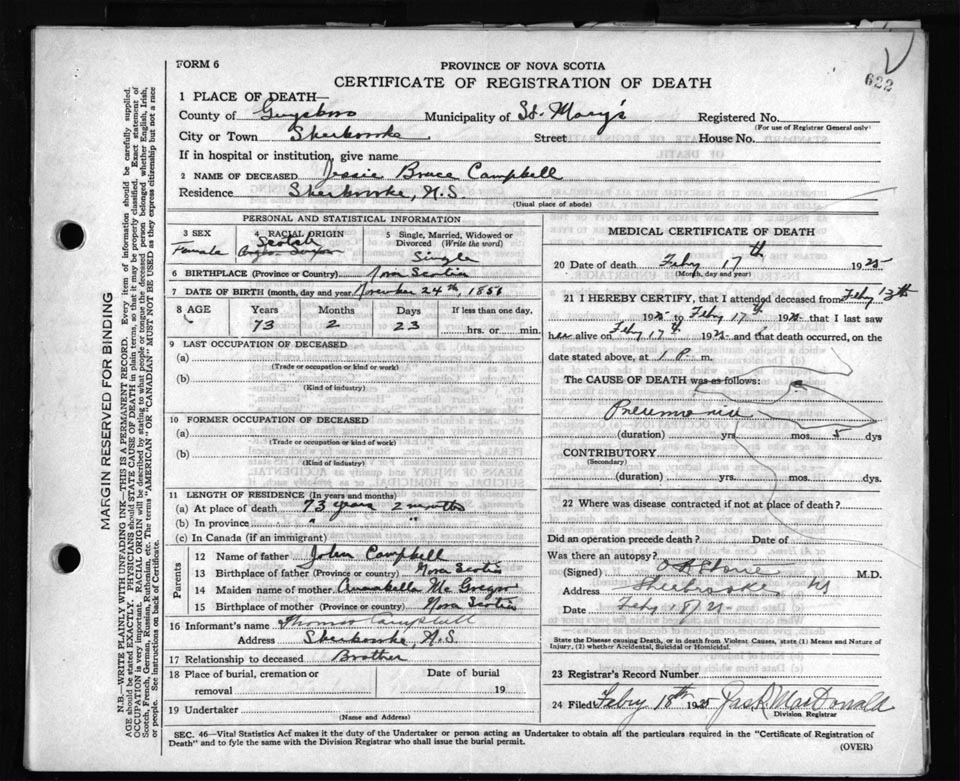 FORM 6
PROVINCE OF NOVA SCOTIA
622
CERTIFICATE OF REGISTRATION OF DEATH
1 PLACE OF DEATH—
County of Guysboro Municipality of St. Mary's Registered No.
(For use of Registrar General only)
City or Town Sherbrooke Street House No.
If in hospital or institution, give name
2 NAME OF DECEASED Jessie Bruce Campbell
Residence Sherbrooke, N.S.
(Usual place of abode)
PERSONAL AND STATISTICAL INFORMATION
3 SEX 4 RACIAL ORIGIN 5 Single, Married, Widowed or Divorced (Write the word)
Female Scotch Single
6 BIRTHPLACE (Province or Country) Nova Scotia
7 DATE OF BIRTH (month, day and year) November 24th, 1851
8 AGE Years Months Days If less than one day,
73 2 23 hrs. or min.
9 LAST OCCUPATION OF DECEASED
(a)
(Trade or occupation or kind or work)
(b)
(Kind of industry)
10 FORMER OCCUPATION OF DECEASED
(a)
(Trade or occupation or kind of work)
(b)
(Kind of industry)
11 LENGTH OF RESIDENCE (In years and months)
(a) At place of death 73 years 2 months
(b) In province " "
(c) In Canada (if an immigrant)
Parents
12 Name of father John Campbell
13 Birthplace of father (Province or country) Nova Scotia
14 Maiden name of mother Annabella McGregor
15 Birthplace of mother (Province or country) Nova Scotia
16 Informant's name Thomas Campbell
Address Sherbrooke, N.S.
17 Relationship to deceased Brother
18 Place of burial, cremation or removal Date of burial 19
19 Undertaker
(Name and Address)
MEDICAL CERTIFICATE OF DEATH
20 Date of death Feby 17th 1925
(Month, day and year)
21 I HEREBY CERTIFY, that I attended deceased from Feby 13th
1925 to Feby 17th 1925 that I last saw
her alive on Feby 17th 1925 and that death occurred, on the
date stated above, at 1 P. m.
The CAUSE OF DEATH was as follows:
Pneumonia
(duration) yrs. mos. 5 dys
CONTRIBUTORY
(Secondary)
(duration) yrs. mos. dys
22 Where was disease contracted if not at place of death?
Did an operation precede death? Date of
Was there an autopsy?
(Signed) M.D.
Address Sherbrooke NS
Date Feby 18/25
State the Disease causing Death, or in death from Violent Causes, state (1) Means and Nature of
Injury, (2) whether Accidental, Suicidal or Homicidal.
23 Registrar's Record Number
24 Filed Feby 18th 1925 MacDonald
Division Registrar
SEC. 46—Vital Statistics Act makes it the duty of the Undertaker or person acting as Undertaker to obtain all the particulars required in the "Certificate of Registration of
Death" and to fyle the same with the Division Registrar who shall issue the burial permit.
(OVER)
MARGIN RESERVED FOR BINDING
N.B.—WRITE PLAINLY WITH UNFADING INK—THIS IS A PERMANENT RECORD. Every item of information should be carefully supplied.
AGE should be stated EXACTLY. PHYSICIANS should STATE CAUSE OF DEATH in plain terms, so that it may be properly classified. Exact statement of
OCCUPATION is very important. RACIAL ORIGIN will be described by stating to what people or tongue the deceased person belonged whether English, Irish,
Scotch, French, German, Russian, Ruthenian, etc. The terms "AMERICAN" or "CANADIAN" MUST NOT BE USED as they express citizenship but not a race
See instructions on back of Certificate.